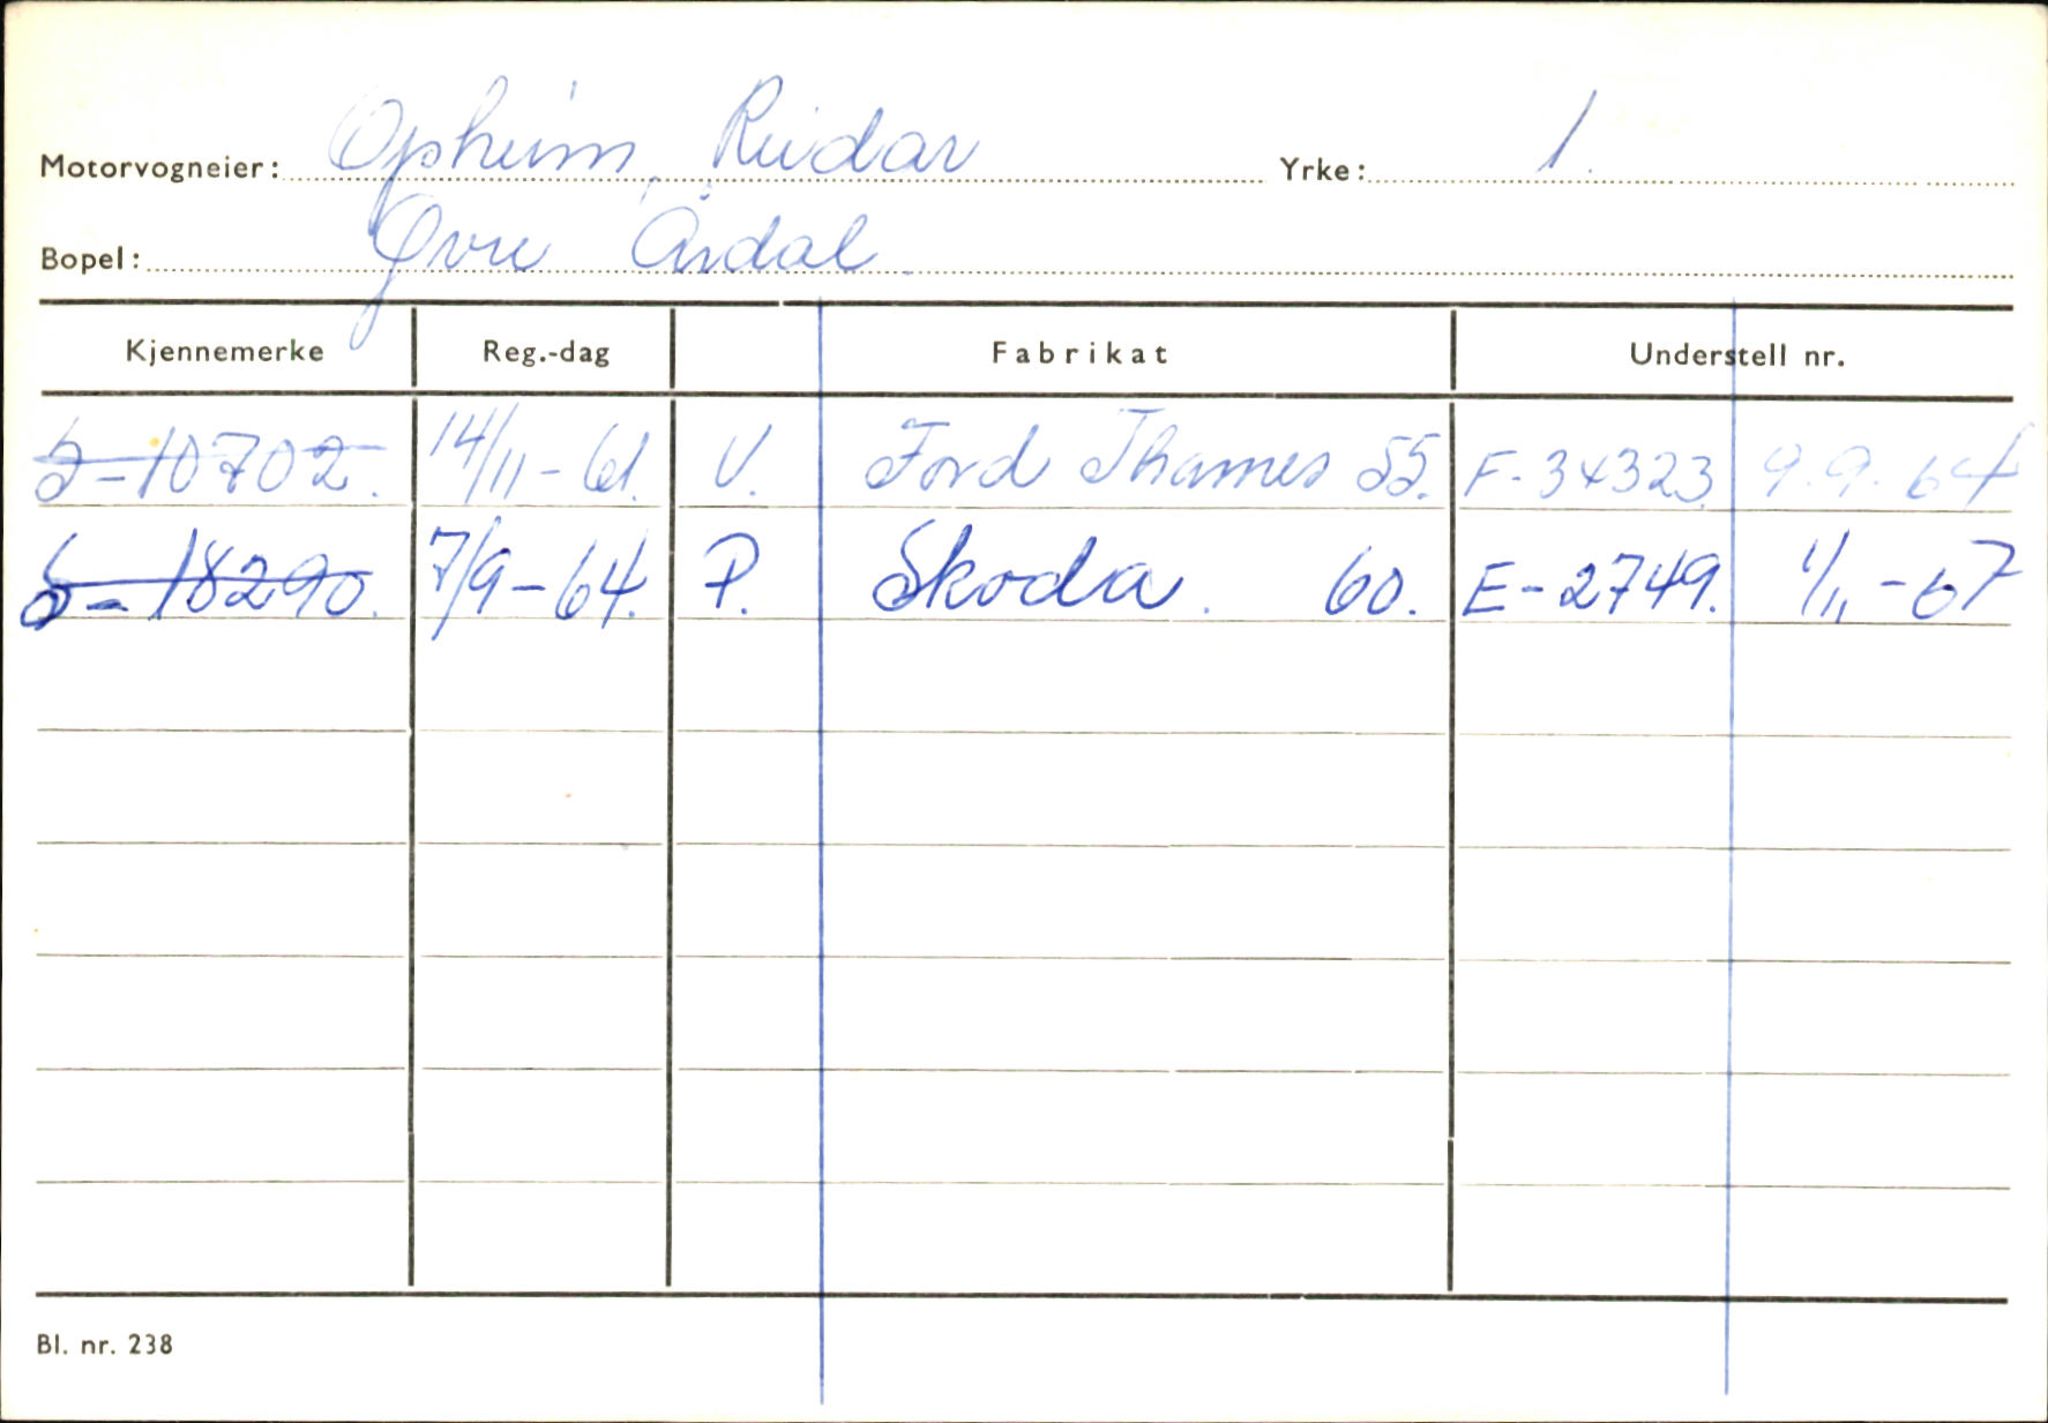 Motorvogneier: Opheim, Reidar Yrke: 1.
Bopel: Øvre Årdal.
Kjennemerke Reg.-dag Fabrikat Understell nr.
S-10702. 14/11-61. V. Ford Thames 55. F-34323 9.9.64
S-18290. 7/9-64. P. Skoda. 60. E-2749. 1/11-67
Bl. nr. 238